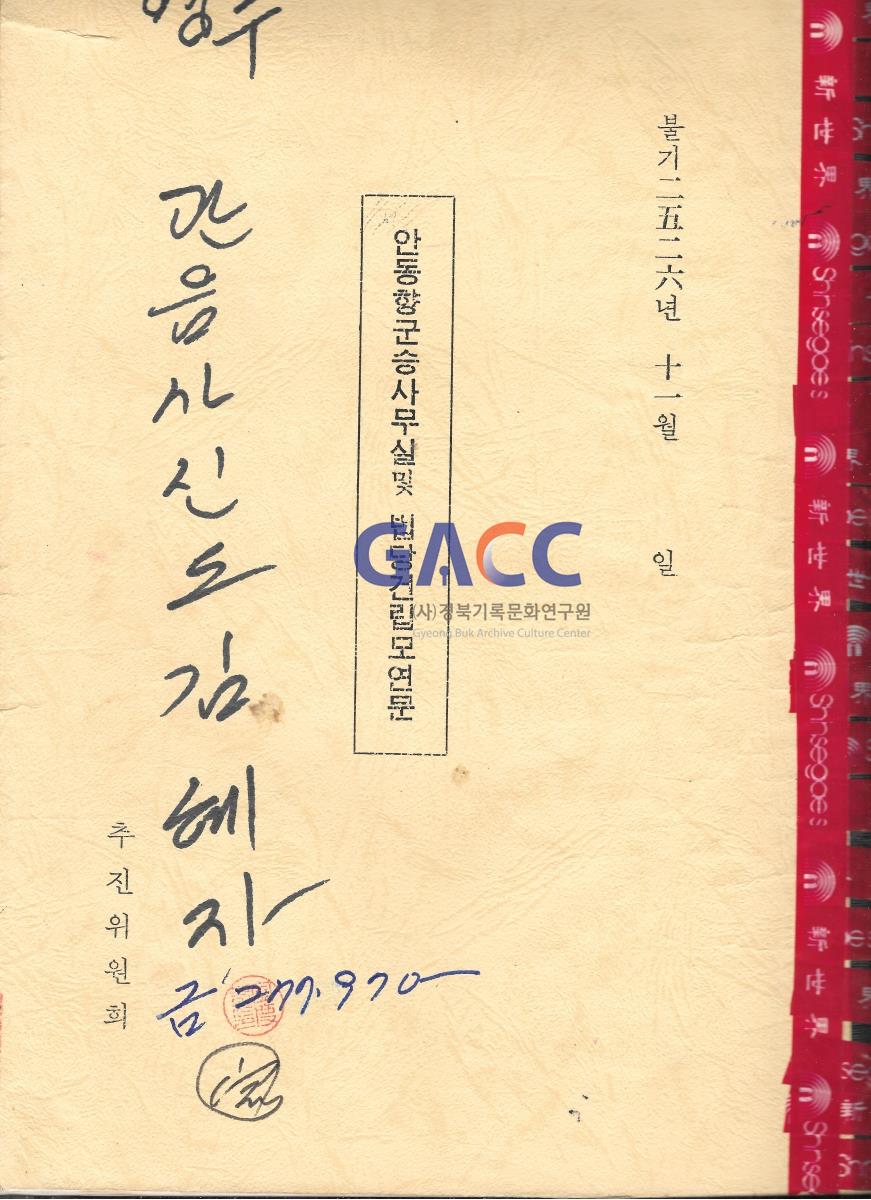 불기二五二六년 十一월 일
안동향군승사무실및 법당건립모연문
영주
관음사신도김혜자
금 277.970
추진위원회
GACC
(사)경북기록문화연구원
Gyeong Buk Archive Culture Center
新世界
Shinsegae
新世界
Shinsegae
新世界